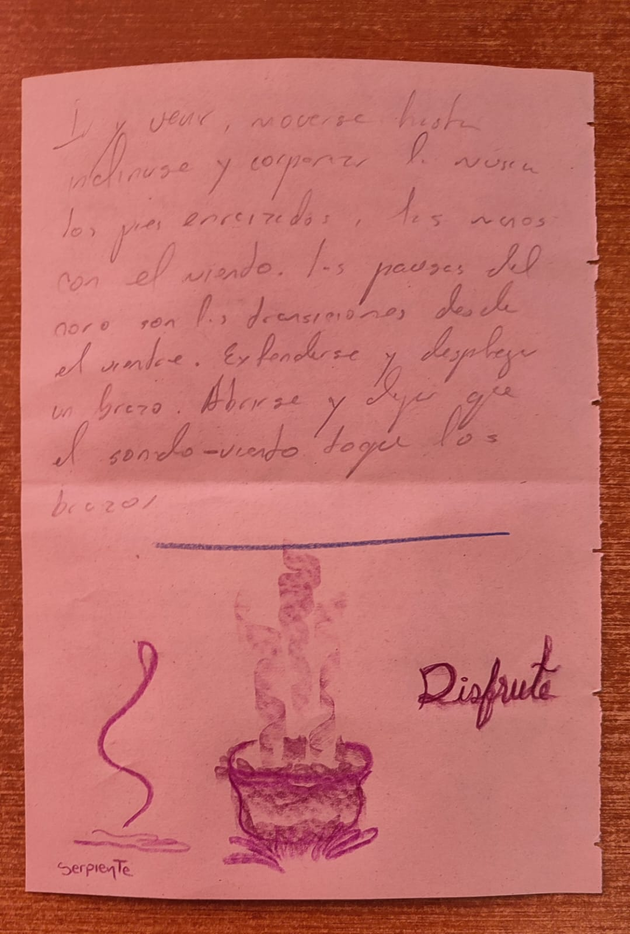 Ir y venir, moverse hasta
inclinarse y corporizar la música
los pies enraizados, las manos
con el viendo. Las pausas del
coro son las transiciones desde
el vientre. Extenderse y desplegar
un brazo. Abrirse y dejar que
el sonido-viento toque los
brazos
Disfrute
serpiente